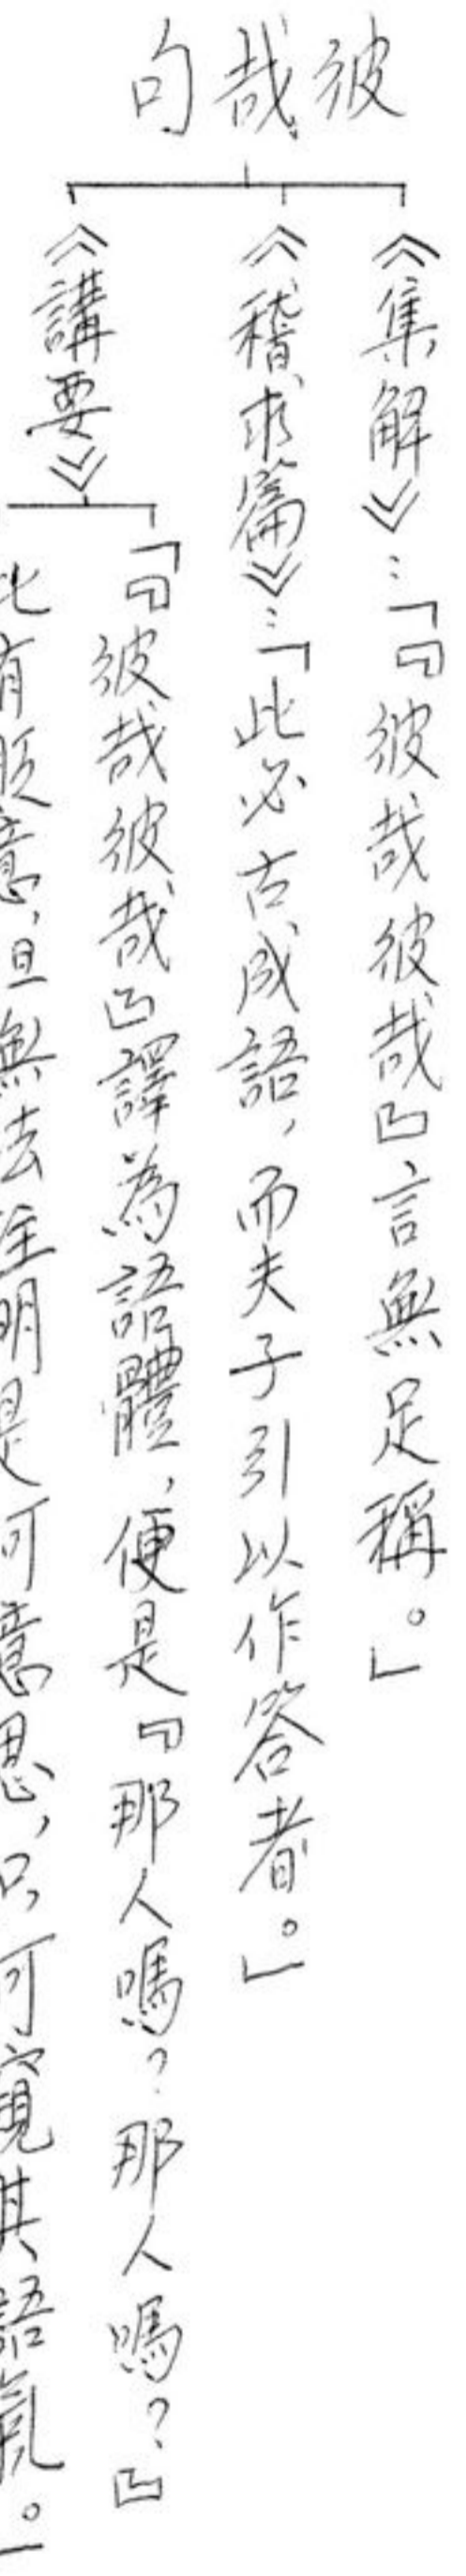 彼哉句
《集解》：「『彼哉彼哉』言無足稱。」
《稽求篇》：「此必古成語，而夫子引以作答者。」
《講要》
「『彼哉彼哉』譯為語體，便是『那人嗎？那人嗎？』
此有貶意，且無法注明是何意思，只可窺其語氣。」